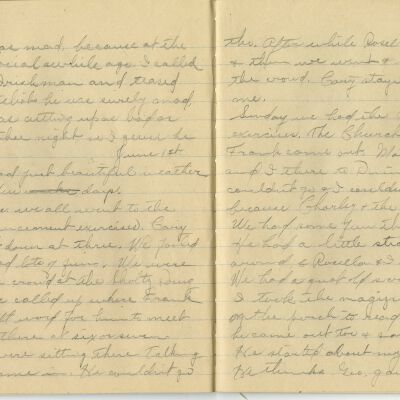 as mad, because at the
social awhile ago I called
Brickman and teased
he was surely mad
as cutting up as bad or
ther night so I guess he
June 1st
had just beautiful weather
few days.
we all went to the
encement exercises. Cary
down at three. We joked
had lots of fun. We were
crowd at the Drug
we called up where Frank
left word for him to meet
there at six or seven
were sitting there talking
came in. He couldn't go
the. After while Rosel
& then we went &
the crowd. Cary stay
me.
Sunday we had the
exercises. The Church
Frank came out. Ma
and I there to Dinn
couldn't go & I couldn
because Charley & the
We had some fun th
He had a little stra
around & Rosella & I
We had a great
I took the magazin
on the porch to read
he came out too & sa
He started about my
Geo,